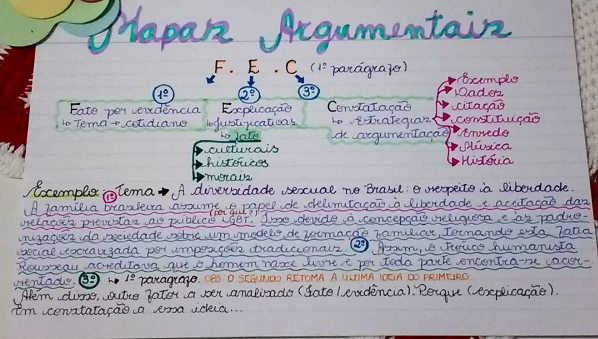 Mapas Argumentais
F. E. C (1º parágrafo)
1º 2º 3º
Fato por evidência
↳ Tema → cotidiano
Explicação
↳ Justificativas
↳ fato
culturais
históricos
morais
Constatação
↳ Estratégias
de argumentação
Exemplo
Dados
citação
constituição
Enredo
Música
História
Exemplo: 1º Tema → A diversidade sexual no Brasil: o respeito à liberdade.
A família brasileira assume o papel de delimitação à liberdade e aceitação das
relações previstas ao público LGBT. (por quê?) Isso devido à concepção religiosa e as padro-
nizações da sociedade sobre um modelo de formação familiar, tornando esta fatia
social escravizada por imposições tradicionais. 2º Assim, o teórico humanista
Rousseau acreditava que o homem nasce livre e por toda parte encontra-se acor-
rentado. 3º ↳ 1º parágrafo. OBS: O SEGUNDO RETOMA A ÚLTIMA IDEIA DO PRIMEIRO
Além disso, outro fator a ser analisado (fato/evidência). Porque (explicação).
Em constatação a essa ideia...